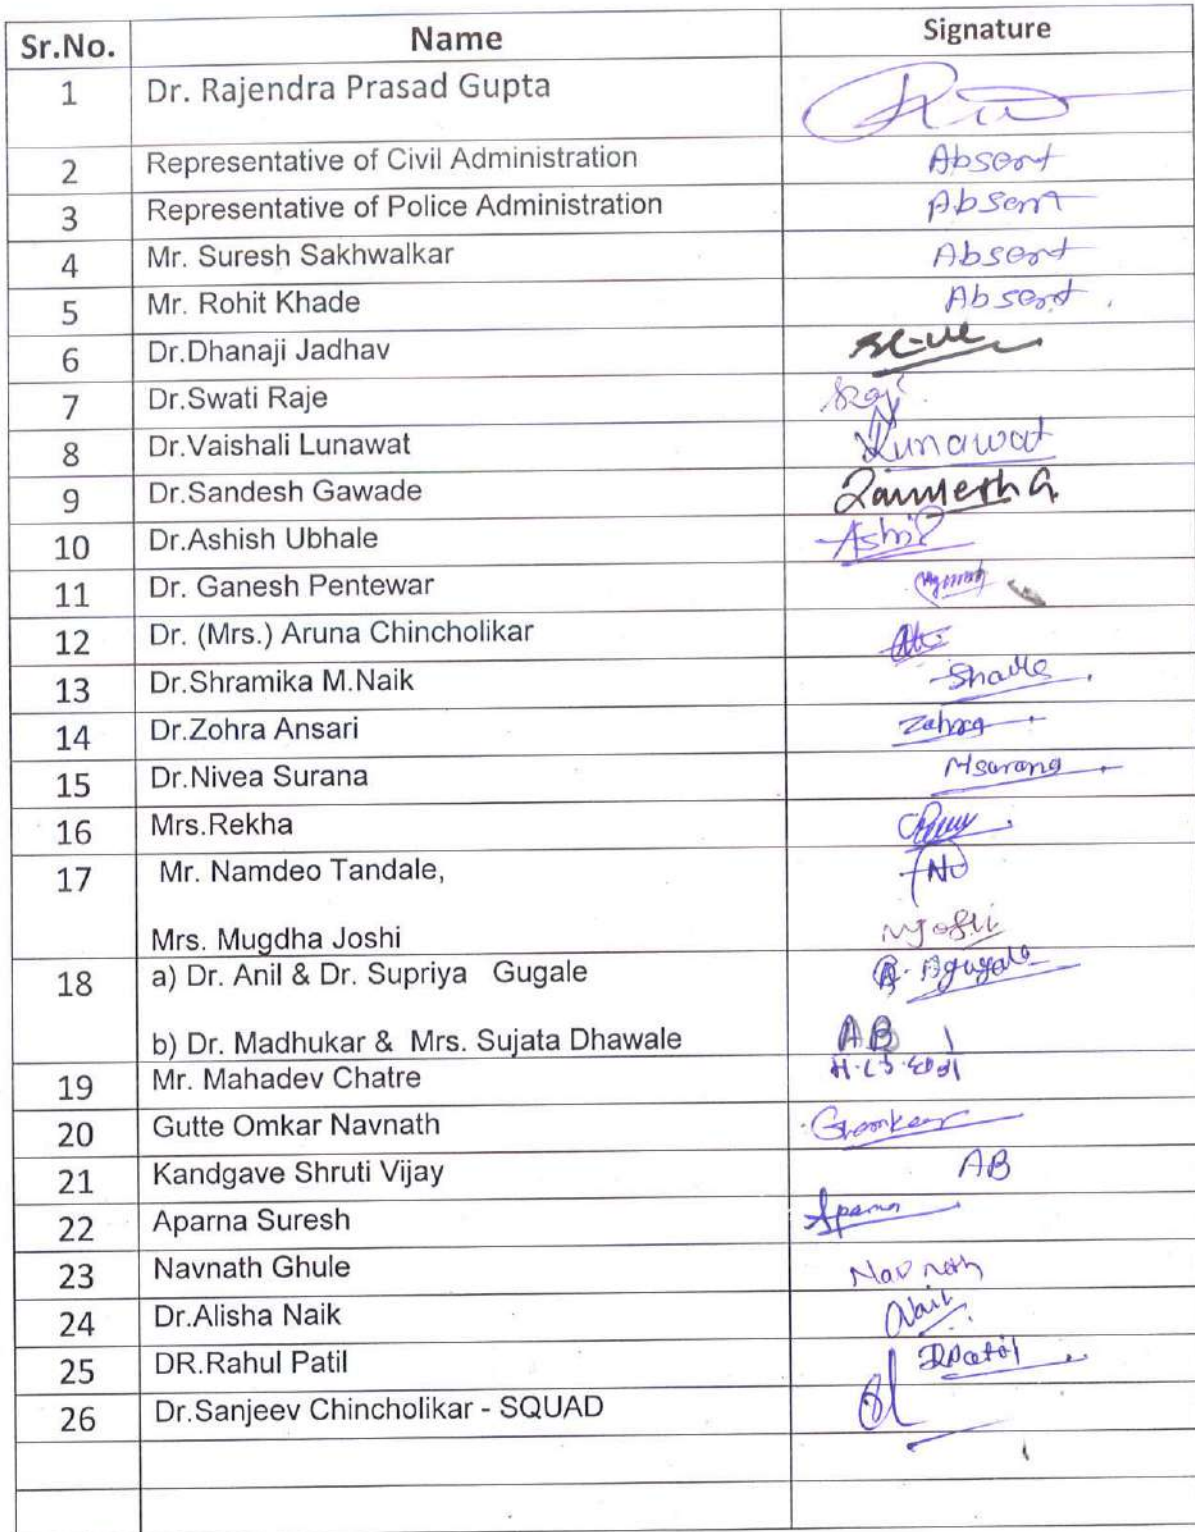 Sr.No. Name Signature
1 Dr. Rajendra Prasad Gupta
2 Representative of Civil Administration Absent
3 Representative of Police Administration Absent
4 Mr. Suresh Sakhwalkar Absent
5 Mr. Rohit Khade Absent
6 Dr.Dhanaji Jadhav
7 Dr.Swati Raje
8 Dr.Vaishali Lunawat Lunawat
9 Dr.Sandesh Gawade
10 Dr.Ashish Ubhale
11 Dr. Ganesh Pentewar
12 Dr. (Mrs.) Aruna Chincholikar
13 Dr.Shramika M.Naik
14 Dr.Zohra Ansari
15 Dr.Nivea Surana
16 Mrs.Rekha
17 Mr. Namdeo Tandale,
Mrs. Mugdha Joshi
18 a) Dr. Anil & Dr. Supriya Gugale
b) Dr. Madhukar & Mrs. Sujata Dhawale AB
19 Mr. Mahadev Chatre
20 Gutte Omkar Navnath
21 Kandgave Shruti Vijay AB
22 Aparna Suresh Aparna
23 Navnath Ghule Navnath
24 Dr.Alisha Naik Naik
25 DR.Rahul Patil RPatil
26 Dr.Sanjeev Chincholikar - SQUAD